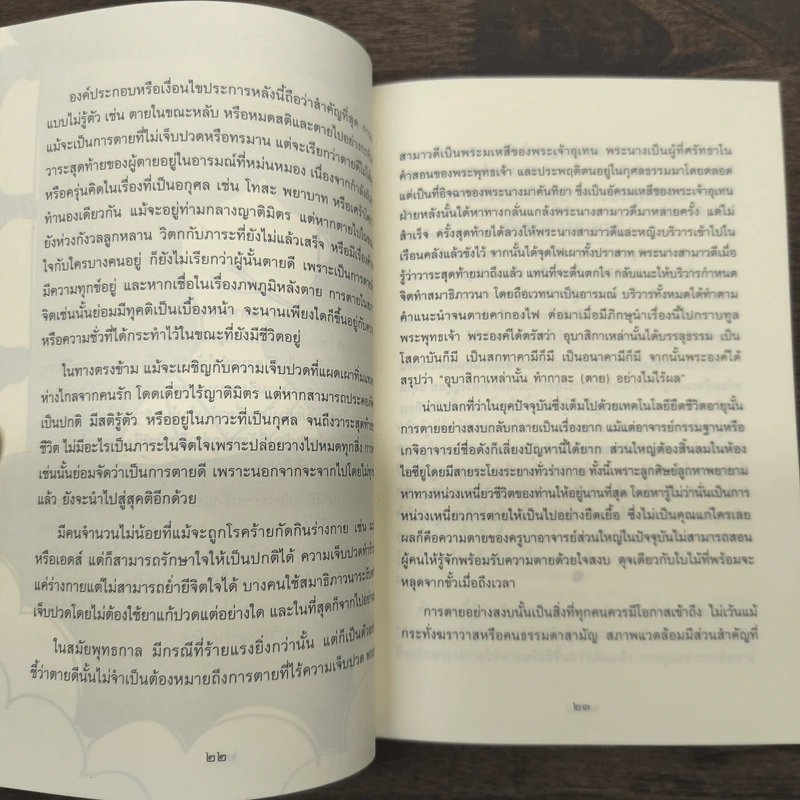 องค์ประกอบหรือเงื่อนไขประการหลังนี้ถือว่าสำคัญที่สุด
แบบไม่รู้ตัว เช่น ตายในขณะหลับ หรือหมดสติและตายไปอย่าง
แม้จะเป็นการตายที่ไม่เจ็บปวดหรือทรมาน แต่จะเรียกว่าตายดี
วาระสุดท้ายของผู้ตายอยู่ในอารมณ์ที่หม่นหมอง เนื่องจาก
หรือครุ่นคิดในเรื่องที่เป็นอกุศล เช่น โทสะ พยาบาท หรือ
ทำนองเดียวกัน แม้จะอยู่ท่ามกลางญาติมิตร แต่หากตายไป
ยังห่วงกังวลลูกหลาน วิตกกับภาระที่ยังไม่แล้วเสร็จ หรือมีเรื่อง
ใจกับใครบางคนอยู่ ก็ยังไม่เรียกว่าผู้นั้นตายดี เพราะเป็นการตาย
มีความทุกข์อยู่ และหากเชื่อในเรื่องภพภูมิหลังตาย การตายใน
จิตเช่นนั้นย่อมมีทุคติเป็นเบื้องหน้า จะนานเพียงใดก็ขึ้นอยู่กับ
หรือความชั่วที่ได้กระทำไว้ในขณะที่ยังมีชีวิตอยู่
ในทางตรงข้าม แม้จะเผชิญกับความเจ็บปวดที่แผดเผาทิ่มแทง
ห่างไกลจากคนรัก โดดเดี่ยวไร้ญาติมิตร แต่หากสามารถประคอง
เป็นปกติ มีสติรู้ตัว หรืออยู่ในภาวะที่เป็นกุศล จนถึงวาระสุดท้าย
ชีวิต ไม่มีอะไรเป็นภาระในจิตใจเพราะปล่อยวางไปหมดทุกสิ่ง
เช่นนั้นย่อมจัดว่าเป็นการตายดี เพราะนอกจากจะจากไปโดยไม่
แล้ว ยังจะนำไปสู่สุคติอีกด้วย
มีคนจำนวนไม่น้อยที่แม้จะถูกโรคร้ายกัดกินร่างกาย เช่น
หรือเอดส์ แต่ก็สามารถรักษาใจให้เป็นปกติได้ ความเจ็บปวด
แค่ร่างกายแต่ไม่สามารถย่ำยีจิตใจได้ บางคนใช้สมาธิภาวนา
เจ็บปวดโดยไม่ต้องใช้ยาแก้ปวดแต่อย่างใด และในที่สุดก็จากไป
ในสมัยพุทธกาล มีกรณีที่ร้ายแรงยิ่งกว่านั้น แต่ก็เป็น
ชี้ว่าตายดีนั้นไม่จำเป็นต้องหมายถึงการตายที่ไร้ความเจ็บปวด
๒๒
สามาวดีเป็นพระมเหสีของพระเจ้าอุเทน พระนางเป็นผู้ที่ศรัทธาใน
คำสอนของพระพุทธเจ้า และประพฤติตนอยู่ในกุศลธรรมมาโดยตลอด
แต่เป็นที่อิจฉาของพระนางมาคันทิยา ซึ่งเป็นอัครมเหสีของพระเจ้าอุเทน
ฝ่ายหลังนั้นได้หาทางกลั่นแกล้งพระนางสามาวดีมาหลายครั้ง แต่ไม่
สำเร็จ ครั้งสุดท้ายได้ลวงให้พระนางสามาวดีและหญิงบริวารเข้าไปใน
เรือนคลังแล้วขังไว้ จากนั้นได้จุดไฟเผาทั้งปราสาท พระนางสามาวดีเมื่อ
รู้ว่าวาระสุดท้ายมาถึงแล้ว แทนที่จะตื่นตกใจ กลับแนะให้บริวารกำหนด
จิตทำสมาธิภาวนา โดยถือเวทนาเป็นอารมณ์ บริวารทั้งหมดได้ทำตาม
คำแนะนำจนตายคากองไฟ ต่อมาเมื่อมีภิกษุนำเรื่องนี้ไปกราบทูล
พระพุทธเจ้า พระองค์ได้ตรัสว่า อุบาสิกาเหล่านั้นได้บรรลุธรรม เป็น
โสดาบันก็มี เป็นสกทาคามีก็มี เป็นอนาคามีก็มี จากนั้นพระองค์ได้
สรุปว่า “อุบาสิกาเหล่านั้น ทำกาละ (ตาย) อย่างไม่ไร้ผล”
น่าแปลกที่ว่าในยุคปัจจุบันซึ่งเต็มไปด้วยเทคโนโลยียืดชีวิตอายุนั้น
การตายอย่างสงบกลับกลายเป็นเรื่องยาก แม้แต่อาจารย์กรรมฐานหรือ
เกจิอาจารย์ชื่อดังก็เลี่ยงปัญหานี้ได้ยาก ส่วนใหญ่ต้องสิ้นลมในห้อง
ไอซียูโดยมีสายระโยงระยางทั่วร่างกาย ทั้งนี้เพราะลูกศิษย์ลูกหาพยายาม
หาทางหน่วงเหนี่ยวชีวิตของท่านให้อยู่นานที่สุด โดยหารู้ไม่ว่านั่นเป็นการ
หน่วงเหนี่ยวการตายให้เป็นไปอย่างยืดเยื้อ ซึ่งไม่เป็นคุณแก่ใครเลย
ผลก็คือความตายของครูบาอาจารย์ส่วนใหญ่ในปัจจุบันไม่สามารถสอน
ผู้คนให้รู้จักพร้อมรับความตายด้วยใจสงบ ดุจเดียวกับใบไม้ที่พร้อมจะ
หลุดจากขั้วเมื่อถึงเวลา
การตายอย่างสงบนั้นเป็นสิ่งที่ทุกคนควรมีโอกาสเข้าถึง ไม่เว้นแม้
กระทั่งฆราวาสหรือคนธรรมดาสามัญ สภาพแวดล้อมมีส่วนสำคัญที่
๒๓